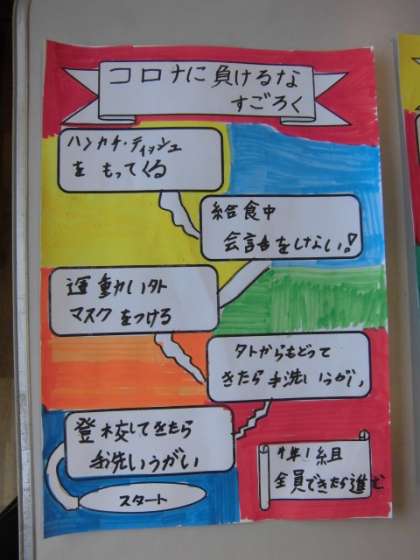 コロナに負けるな
すごろく
ハンカチ・ティッシュ
を もってくる
給食中
会話をしない!
運動い外
マスクをつける
外からもどって
きたら手洗いうがい
登校してきたら
手洗いうがい
スタート
4年1組
全員できたら進む